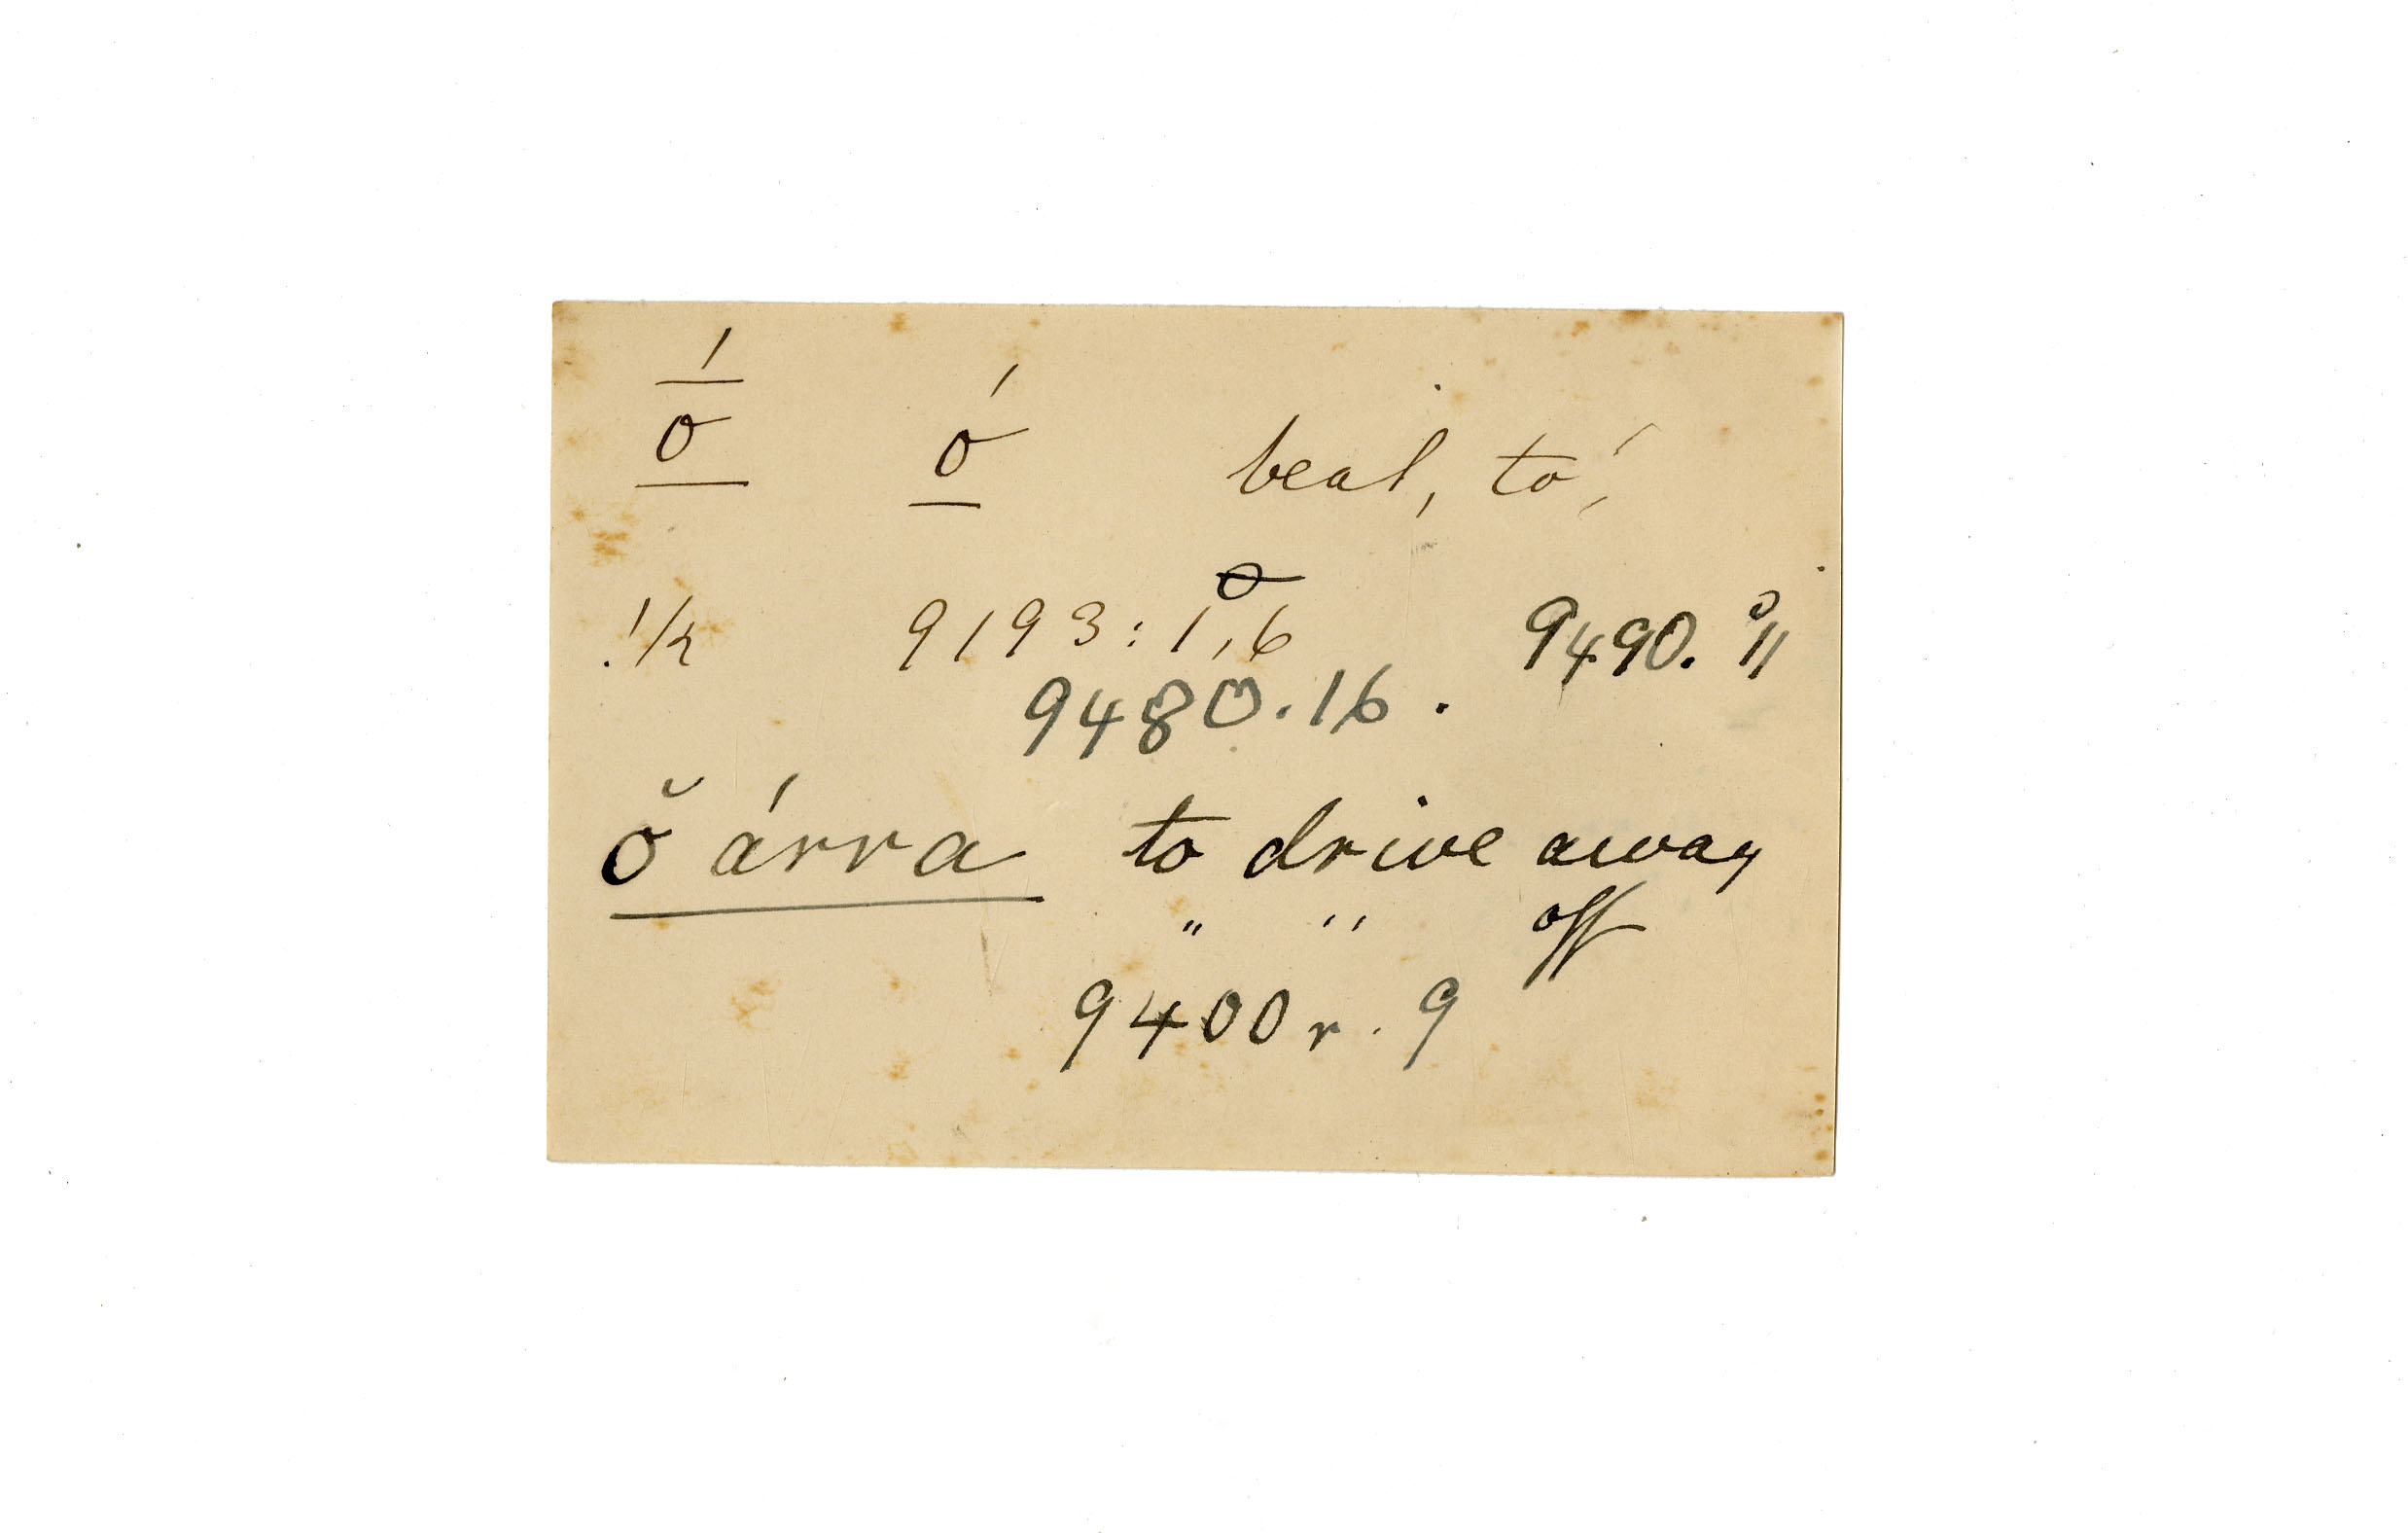 ṓ ó beat, to,
!/2 9193:1,6 9490. 11
9480.16.
ŏ árra to drive away
" " off
9400r.9